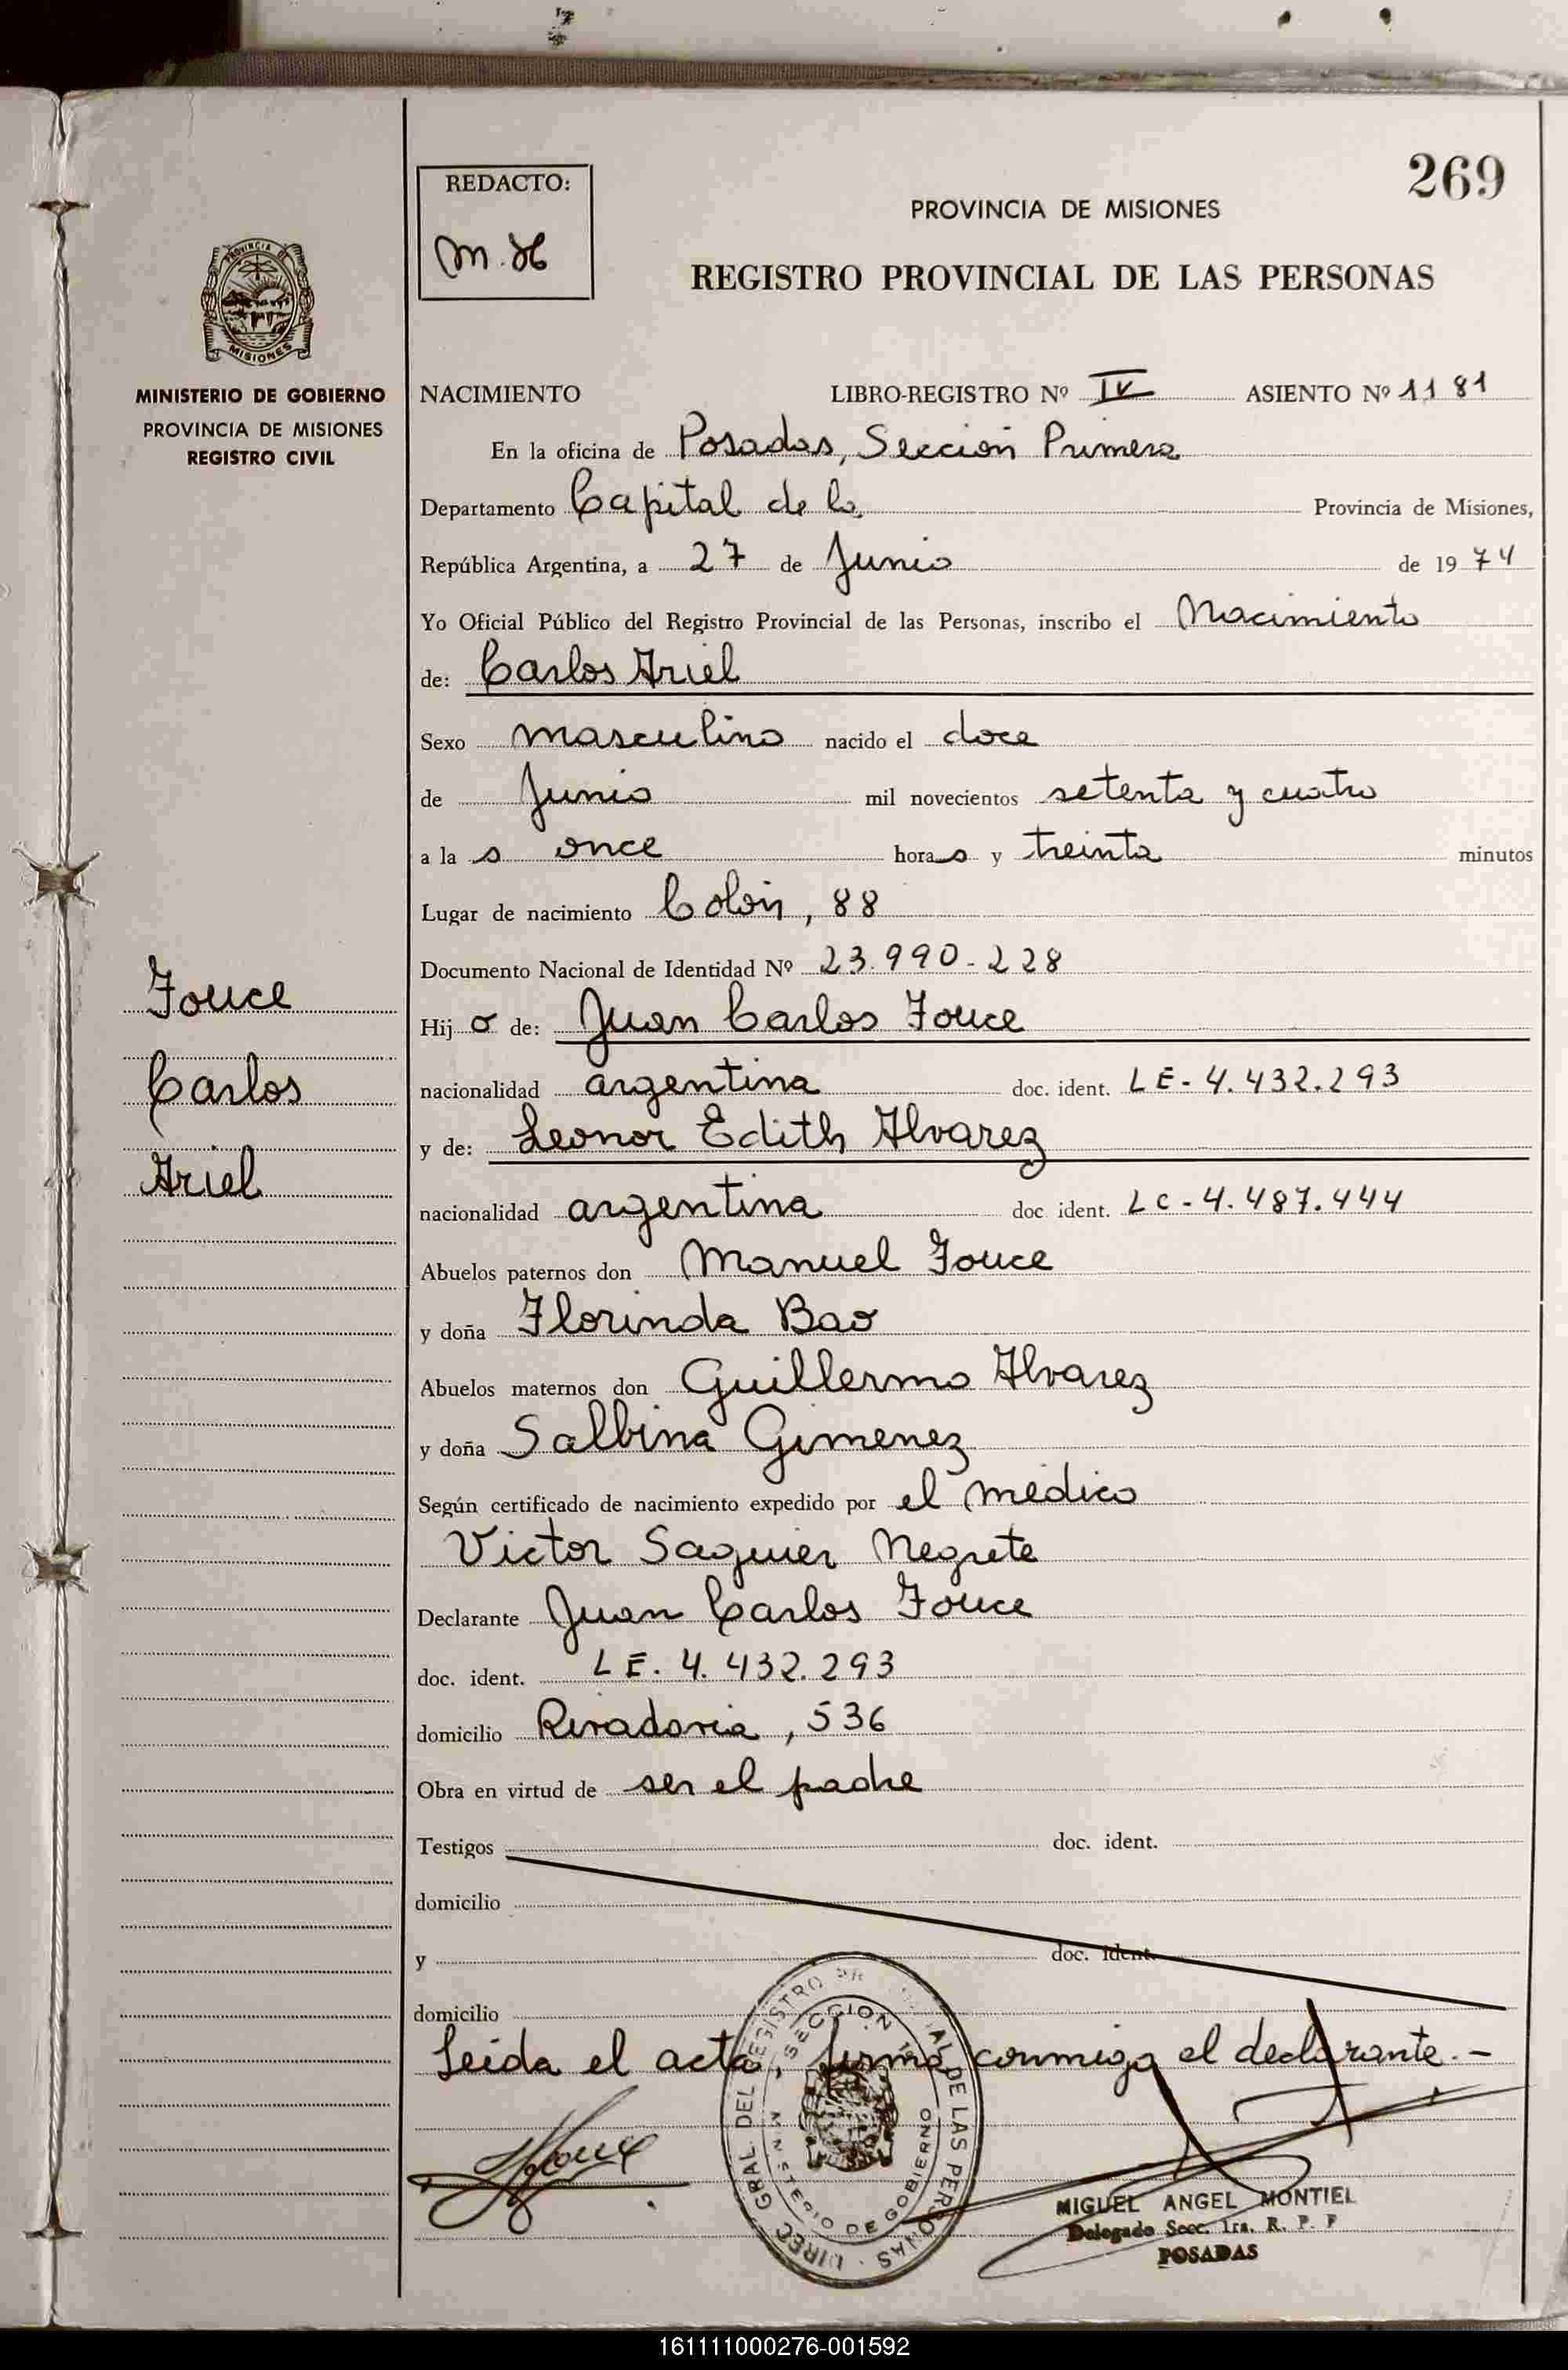 269
REDACTO:
M.H
PROVINCIA DE MISIONES
REGISTRO PROVINCIAL DE LAS PERSONAS
PROVINCIA DE
MISIONES
MINISTERIO DE GOBIERNO
PROVINCIA DE MISIONES
REGISTRO CIVIL
NACIMIENTO LIBRO-REGISTRO Nº IV ASIENTO Nº 1181
En la oficina de Posadas, Sección Primera
Departamento Capital de la Provincia de Misiones,
República Argentina, a 27 de Junio de 1974
Yo Oficial Público del Registro Provincial de las Personas, inscribo el Nacimiento
de: Carlos Ariel
Sexo masculino nacido el doce
de Junio mil novecientos setenta y cuatro
a la s once hora s y treinta minutos
Lugar de nacimiento Colón, 88
Documento Nacional de Identidad Nº 23.990-228
Fouce
Carlos
Ariel
Hij o de: Juan Carlos Fouce
nacionalidad argentina doc. ident. LE-4.432.293
y de: Leonor Edith Alvarez
nacionalidad argentina doc ident. LC-4.487.444
Abuelos paternos don Manuel Fouce
y doña Florinda Bao
Abuelos maternos don Guillermo Alvarez
y doña Salbina Gimenez
Según certificado de nacimiento expedido por el médico
Victor Saguier Negrete
Declarante Juan Carlos Fouce
doc. ident. LE. 4.432.293
domicilio Rivadavia, 536
Obra en virtud de ser el padre
Testigos doc. ident.
domicilio
y doc. ident.
domicilio
Leida el acta, firma conmigo el declarante.-
DIREC GRAL DEL REGISTRO DE LAS PERSONAS
SECCION 1ª
MINISTERIO DE GOBIERNO
MIGUEL ANGEL MONTIEL
Delegado Secc. 1ra. R. P. P
POSADAS
161111000276-001592